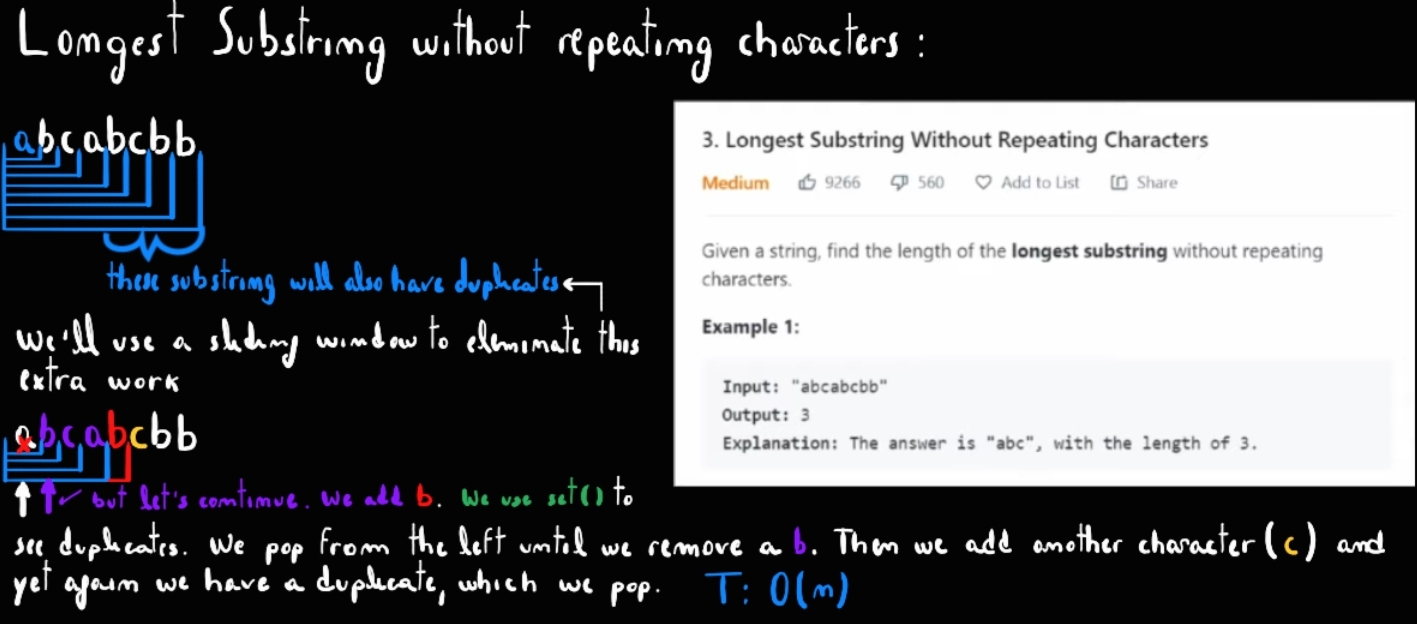 Longest Substring without repeating characters :
abcabcbb
these substring will also have duplicates
We'll use a sliding window to eleminate this
extra work
abcabcbb
but let's continue. We add b. We use set() to
see duplicates. We pop from the left until we remove a b. Then we add another character (c) and
yet again we have a duplicate, which we pop. T: O(n)
3. Longest Substring Without Repeating Characters
Medium 9266 560 Add to List Share
Given a string, find the length of the longest substring without repeating
characters.
Example 1:
Input: "abcabcbb"
Output: 3
Explanation: The answer is "abc", with the length of 3.